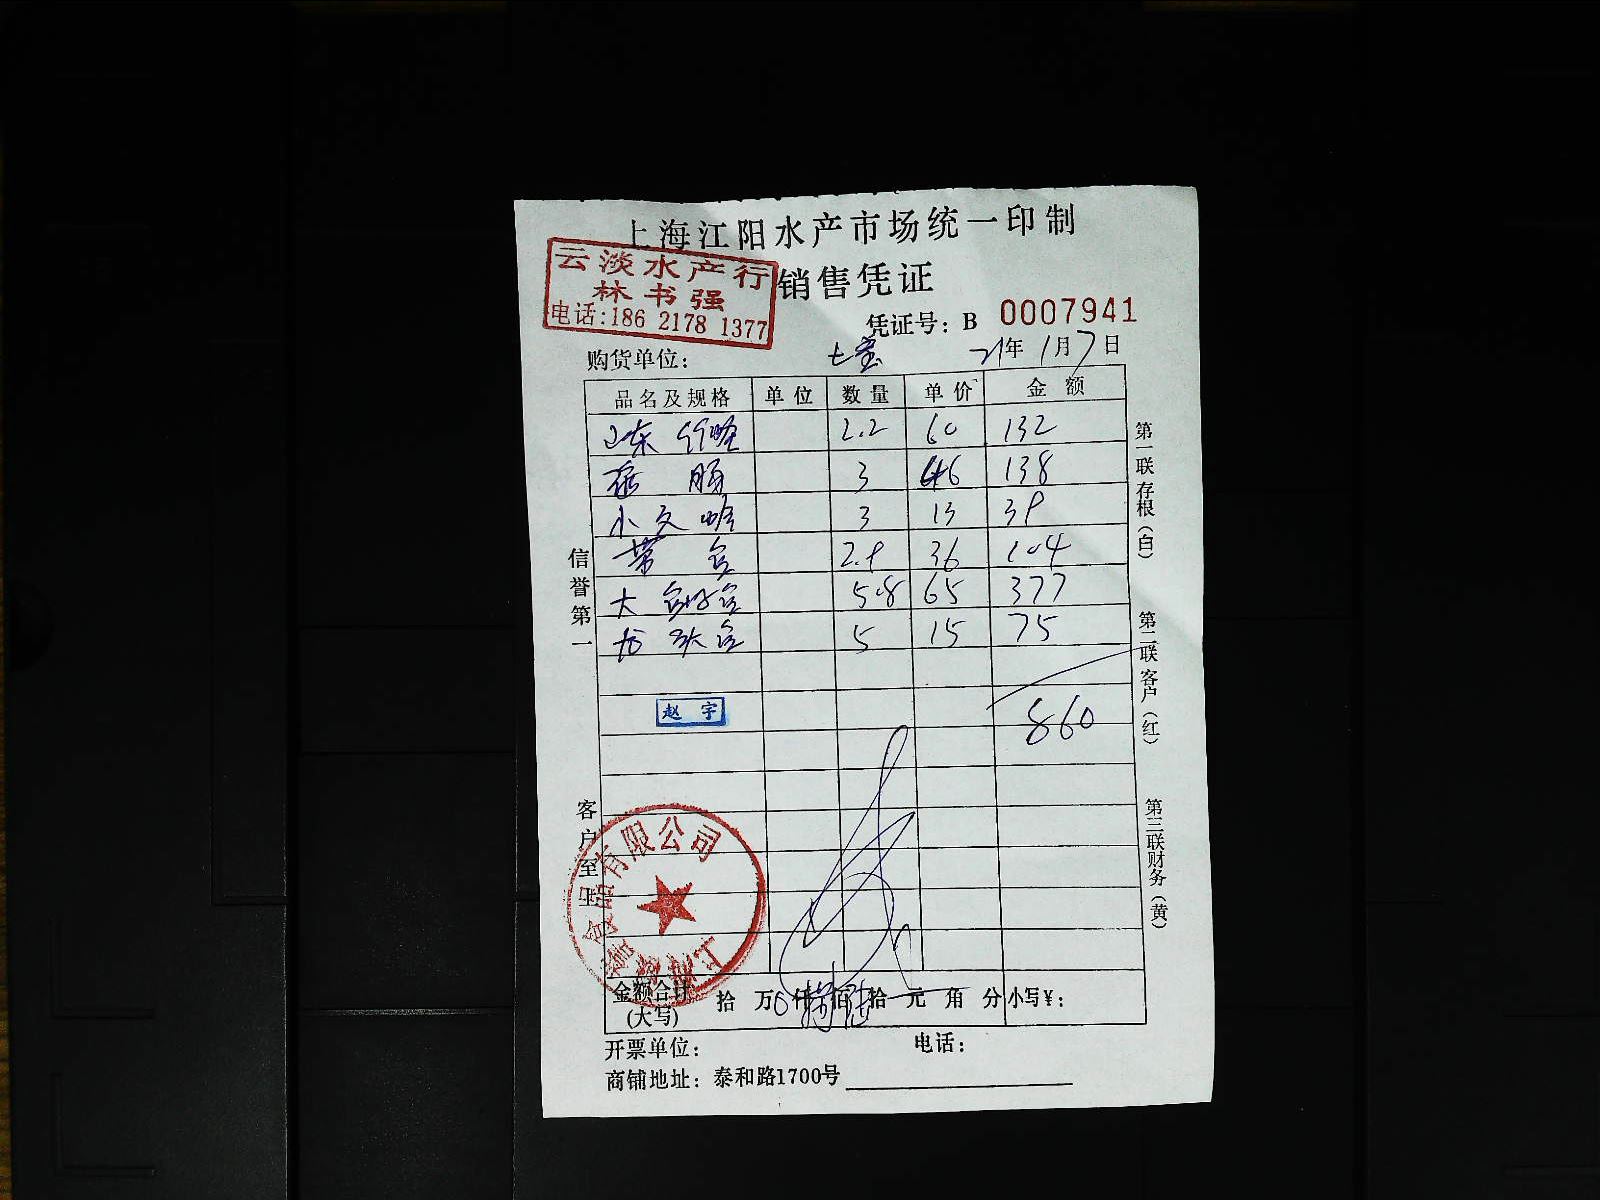 上海江阳水产市场统一印制
云淡水产行
林书强
电话:186 2178 1377
销售凭证
凭证号: B 0007941
购货单位: 七宝 21年1月7日
品名及规格 单位 数量 单价 金额
山东 竹蛏 2.2 60 132
3 46 138
小文蛤 3 13 39
带鱼 2.9 36 104
大 鱼 5.8 65 377
龙头鱼 5 15 75
860
赵宇
信誉第一
客户至上
第一联存根(白)
第二联客户(红)
第三联财务(黄)
食品有限公司
金额合计(大写) 拾 万 仟 佰 拾 元 角 分 小写¥:
开票单位: 电话:
商铺地址: 泰和路1700号